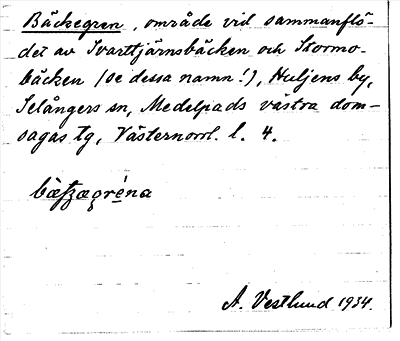 Bäckegren, område vid sammanflö-
det av Svarttjärnsbäcken och Stormo-
bäcken (se dessa namn!), Huljens by,
Selångers sn, Medelpads västra dom-
sagas tg, Västernorrl. l. 4.

A. Vestlund 1934.